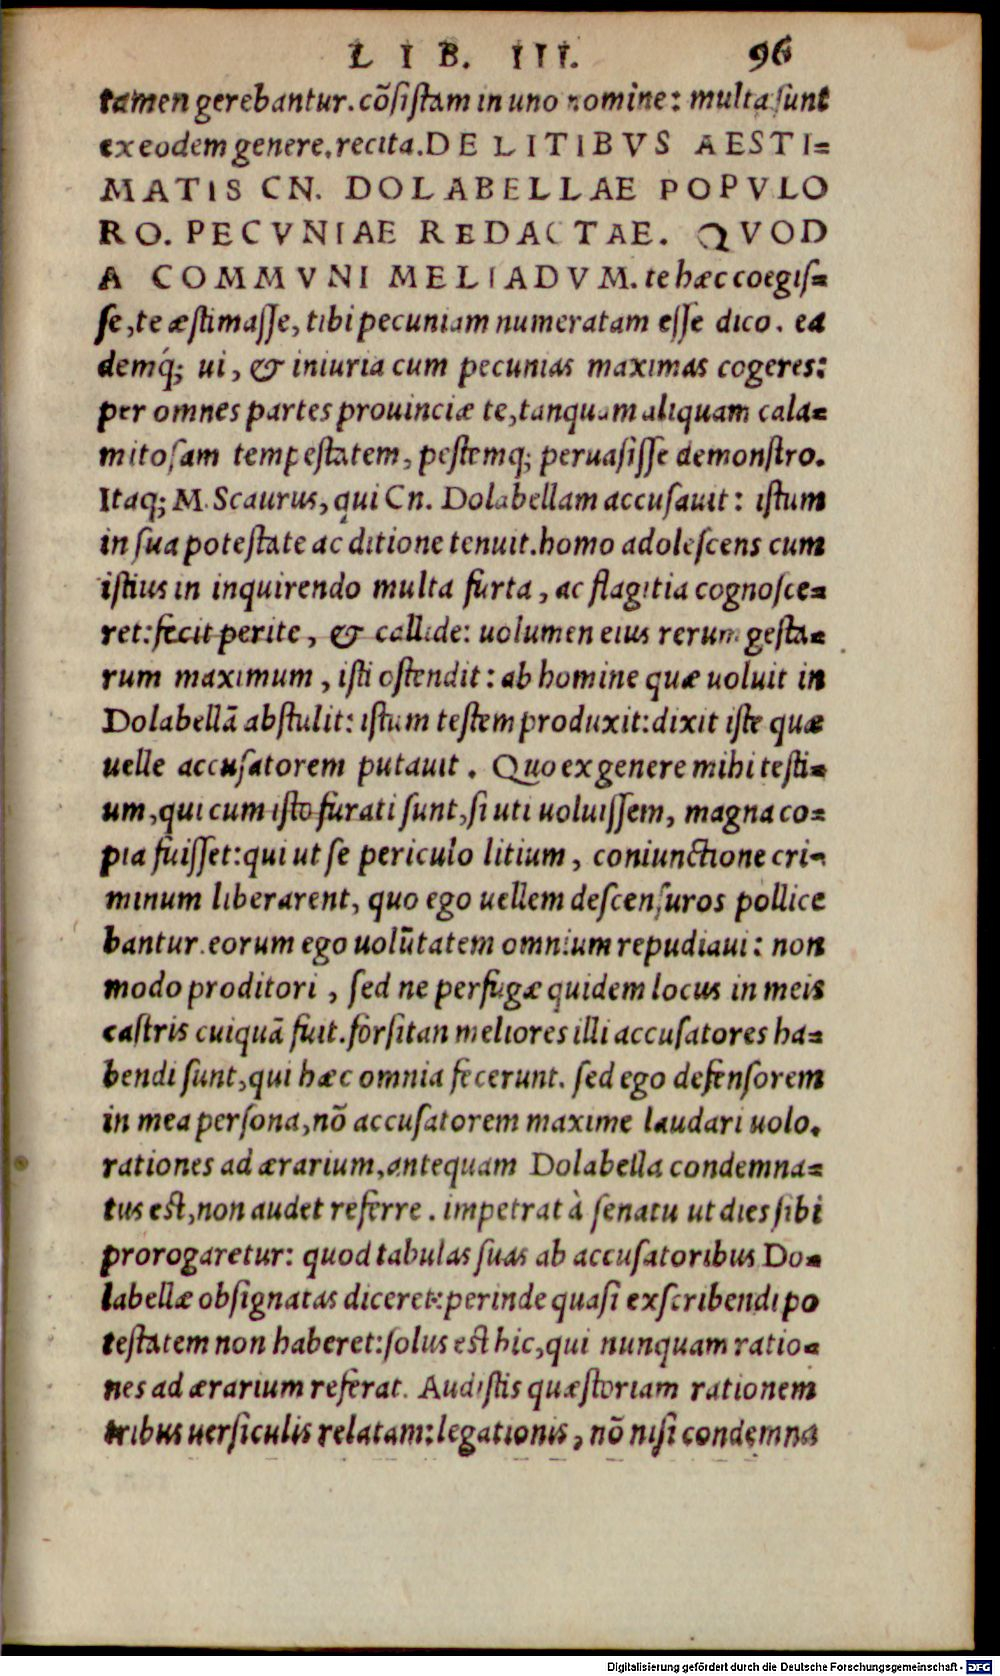 LIB. III. 96
tamen gerebantur. cõsistam in uno nomine: multa sunt
ex eodem genere. recita. DE LITIBVS AESTI-
MATIS CN. DOLABELLAE POPVLO
RO. PECVNIAE REDACTAE. QVOD
A COMMVNI MELIADVM. te hæc coegis-
se, te æstimasse, tibi pecuniam numeratam esse dico. ea
demq́; ui, & iniuria cum pecunias maximas cogeres:
per omnes partes prouinciæ te, tanquam aliquam cala-
mitosam tempestatem, pestemq; peruasisse demonstro.
Itaq; M. Scaurus, qui Cn. Dolabellam accusauit: istum
in sua potestate ac ditione tenuit. homo adolescens cum
istius in inquirendo multa furta, ac flagitia cognosce-
ret: fecit perite, & callide: uolumen eius rerum gesta-
rum maximum, isti ostendit: ab homine quæ uoluit in
Dolabellã abstulit: istum testem produxit: dixit iste quæ
uelle accusatorem putauit. Quo ex genere mihi testi-
um, qui cum isto furati sunt, si uti uoluissem, magna co-
pia fuisset: qui ut se periculo litium, coniunctione cri-
minum liberarent, quo ego uellem descensuros pollice
bantur. eorum ego uolũtatem omnium repudiaui: non
modo proditori, sed ne perfugæ quidem locus in meis
castris cuiquã fuit. forsitan meliores illi accusatores ha-
bendi sunt, qui hæc omnia fecerunt. sed ego defensorem
in mea persona, nõ accusatorem maxime laudari uolo.
rationes ad ærarium, antequam Dolabella condemna-
tus est, non audet referre. impetrat à senatu ut dies sibi
prorogaretur: quod tabulas suas ab accusatoribus Do-
labellæ obsignatas diceret: perinde quasi exscribendi po
testatem non haberet: solus est hic, qui nunquam ratio-
nes ad ærarium referat. Audistis quæstoriam rationem
tribus uersiculis relatam: legationis, nõ nisi condemna
Digitalisierung gefördert durch die Deutsche Forschungsgemeinschaft - DFG